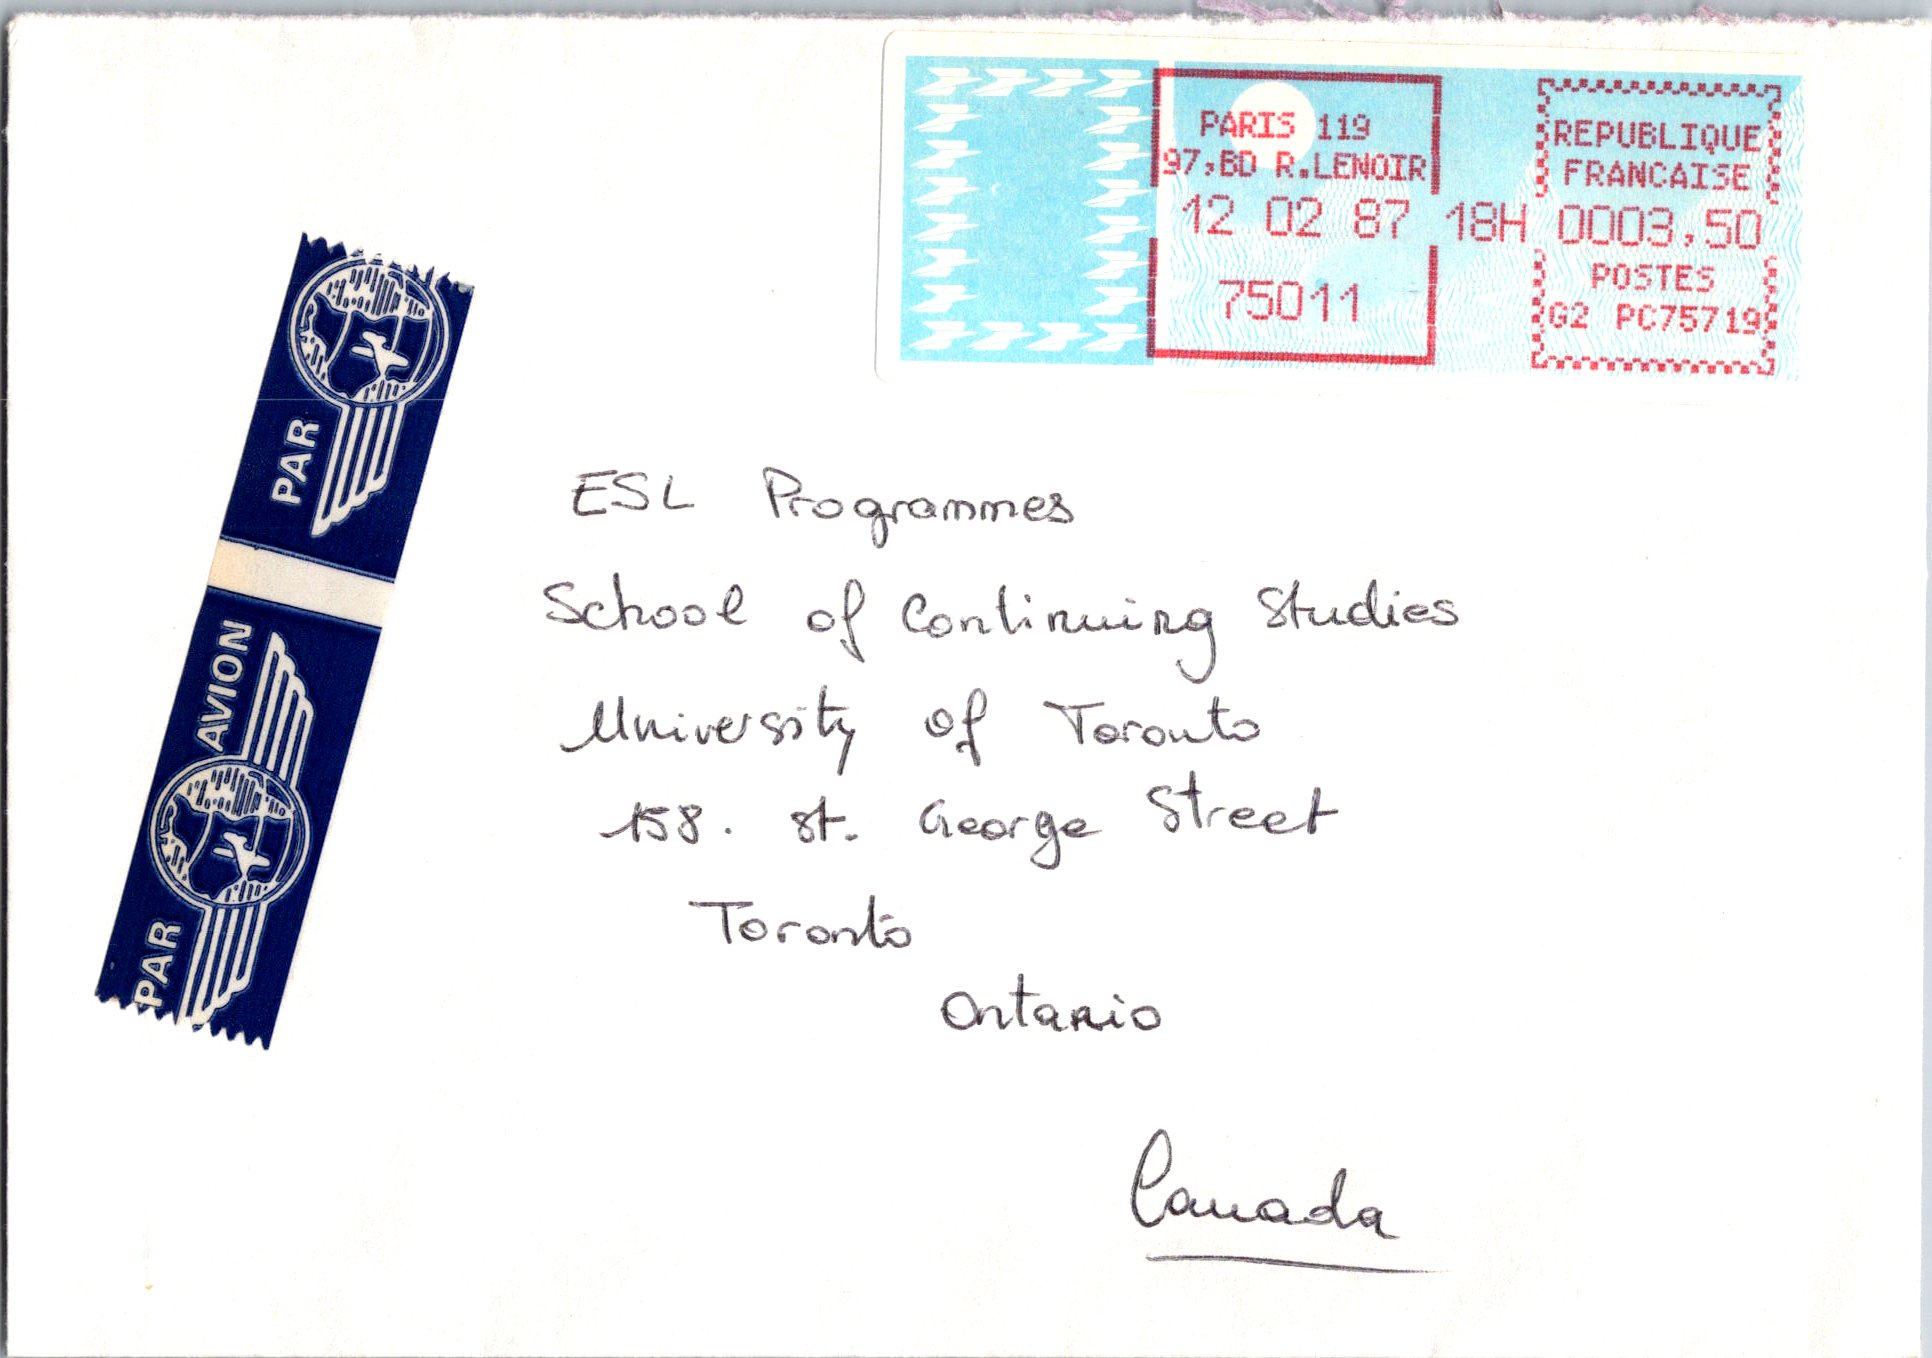 PARIS 119
97,BD R.LENOIR
12 02 87 18H
75011
REPUBLIQUE
FRANCAISE
0003,50
POSTES
G2 PC75719
PAR
AVION
PAR
ESL Programmes
School of Continuing Studies
University of Toronto
158. St. George Street
Toronto
Ontario
Canada